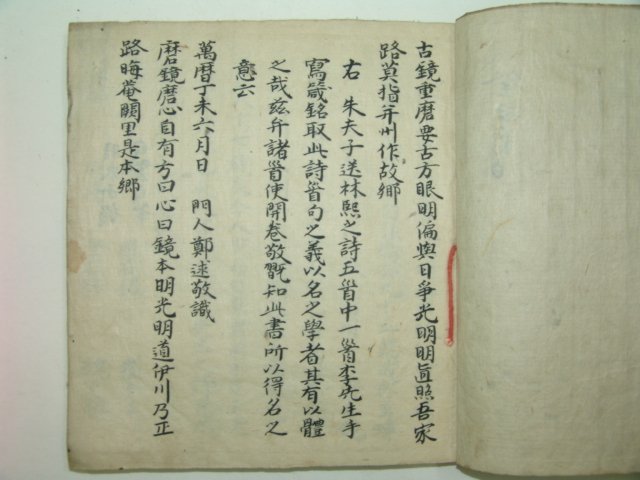 古鏡重磨要古方眼明偏與日爭光明明直照吾家
路莫指并州作故鄉
右朱夫子送林熙之詩五首中一首李先生手
寫箴銘取此詩首句之義以名之學者其有以體
之哉玆弁諸首使開卷敬翫知此書所以得名之
意云
萬曆丁未六月日 門人鄭逑敬識
磨鏡磨心自有方曰心曰鏡本明光明道伊川乃正
路晦菴闕里是本鄉